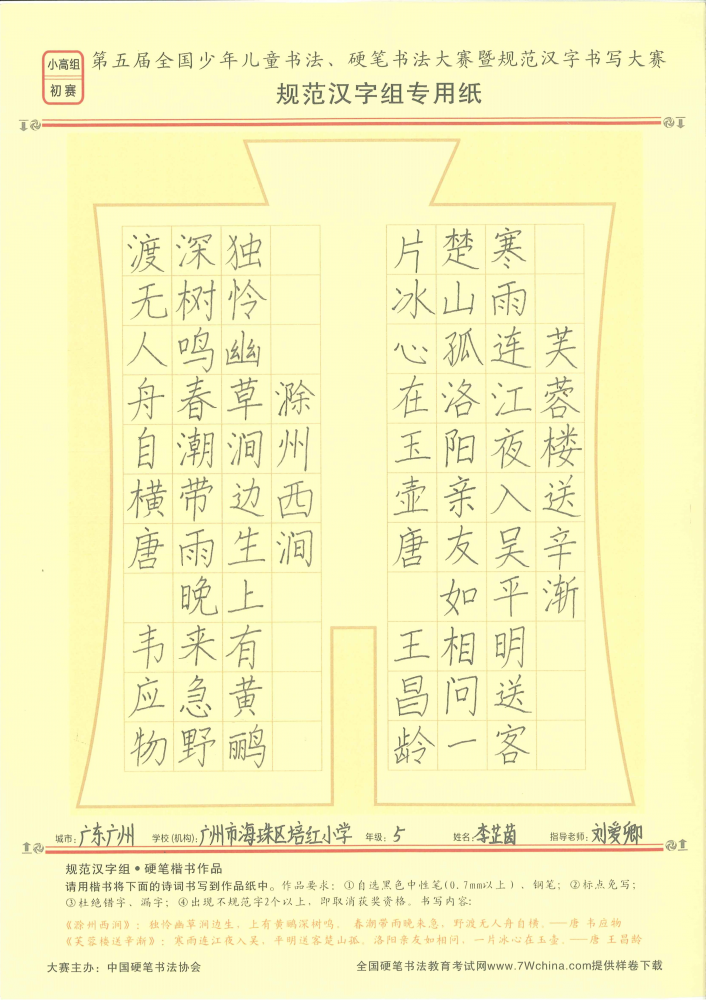 小高组
初赛
第五届全国少年儿童书法、硬笔书法大赛暨规范汉字书写大赛
规范汉字组专用纸
芙蓉楼送辛渐
寒雨连江夜入吴平明送客
楚山孤洛阳亲友如相问一
片冰心在玉壶唐 王昌龄
滁州西涧
独怜幽草涧边生上有黄鹂
深树鸣春潮带雨晚来急野
渡无人舟自横唐 韦应物
城市：广东广州 学校(机构)：广州市海珠区培红小学 年级：5 姓名：李芷茵 指导老师：刘爱卿
规范汉字组•硬笔楷书作品
请用楷书将下面的诗词书写到作品纸中。作品要求：①自选黑色中性笔(0.7mm以上)、钢笔；②标点免写；
③杜绝错字、漏字；④出现不规范字2个以上，即取消获奖资格。书写内容：
《滁州西涧》：独怜幽草涧边生，上有黄鹂深树鸣。 春潮带雨晚来急，野渡无人舟自横。——唐 韦应物
《芙蓉楼送辛渐》：寒雨连江夜入吴，平明送客楚山孤。洛阳亲友如相问，一片冰心在玉壶。——唐 王昌龄
大赛主办：中国硬笔书法协会 全国硬笔书法教育考试网www.7Wchina.com提供样卷下载